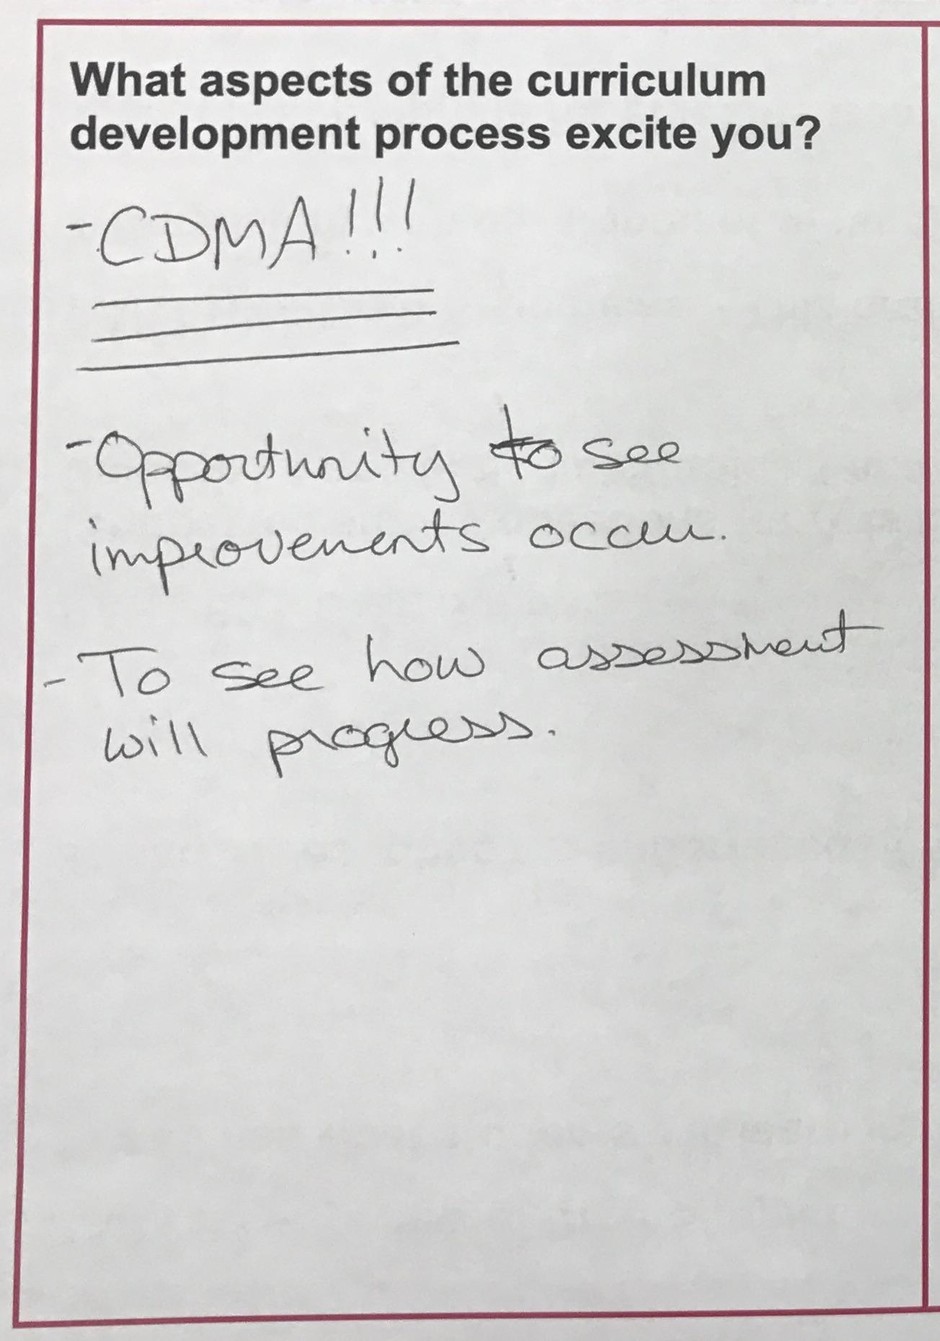 What aspects of the curriculum
development process excite you?
-CDMA!!!
-Opportunity to see
improvements occur.
- To see how assessment
will progress.